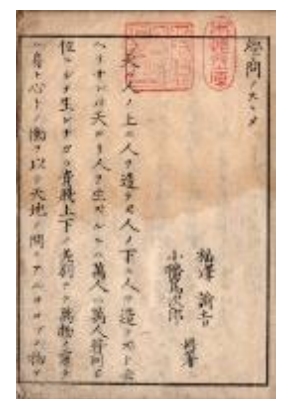 學問ノスヽメ
福澤諭吉
小幡篤次郎 同著
天ハ人ノ上ニ人ヲ造ラズ人ノ下ニ人ヲ造ラズト云
ヘリサレバ天ヨリ人ヲ生ズルニハ萬人ハ萬人皆同ジ
位ニシテ生レナガラ貴賤上下ノ差別ナク萬物ノ靈タ
ル身ト心トノ働ヲ以テ天地ノ間ニアルヨロヅノ物ヲ